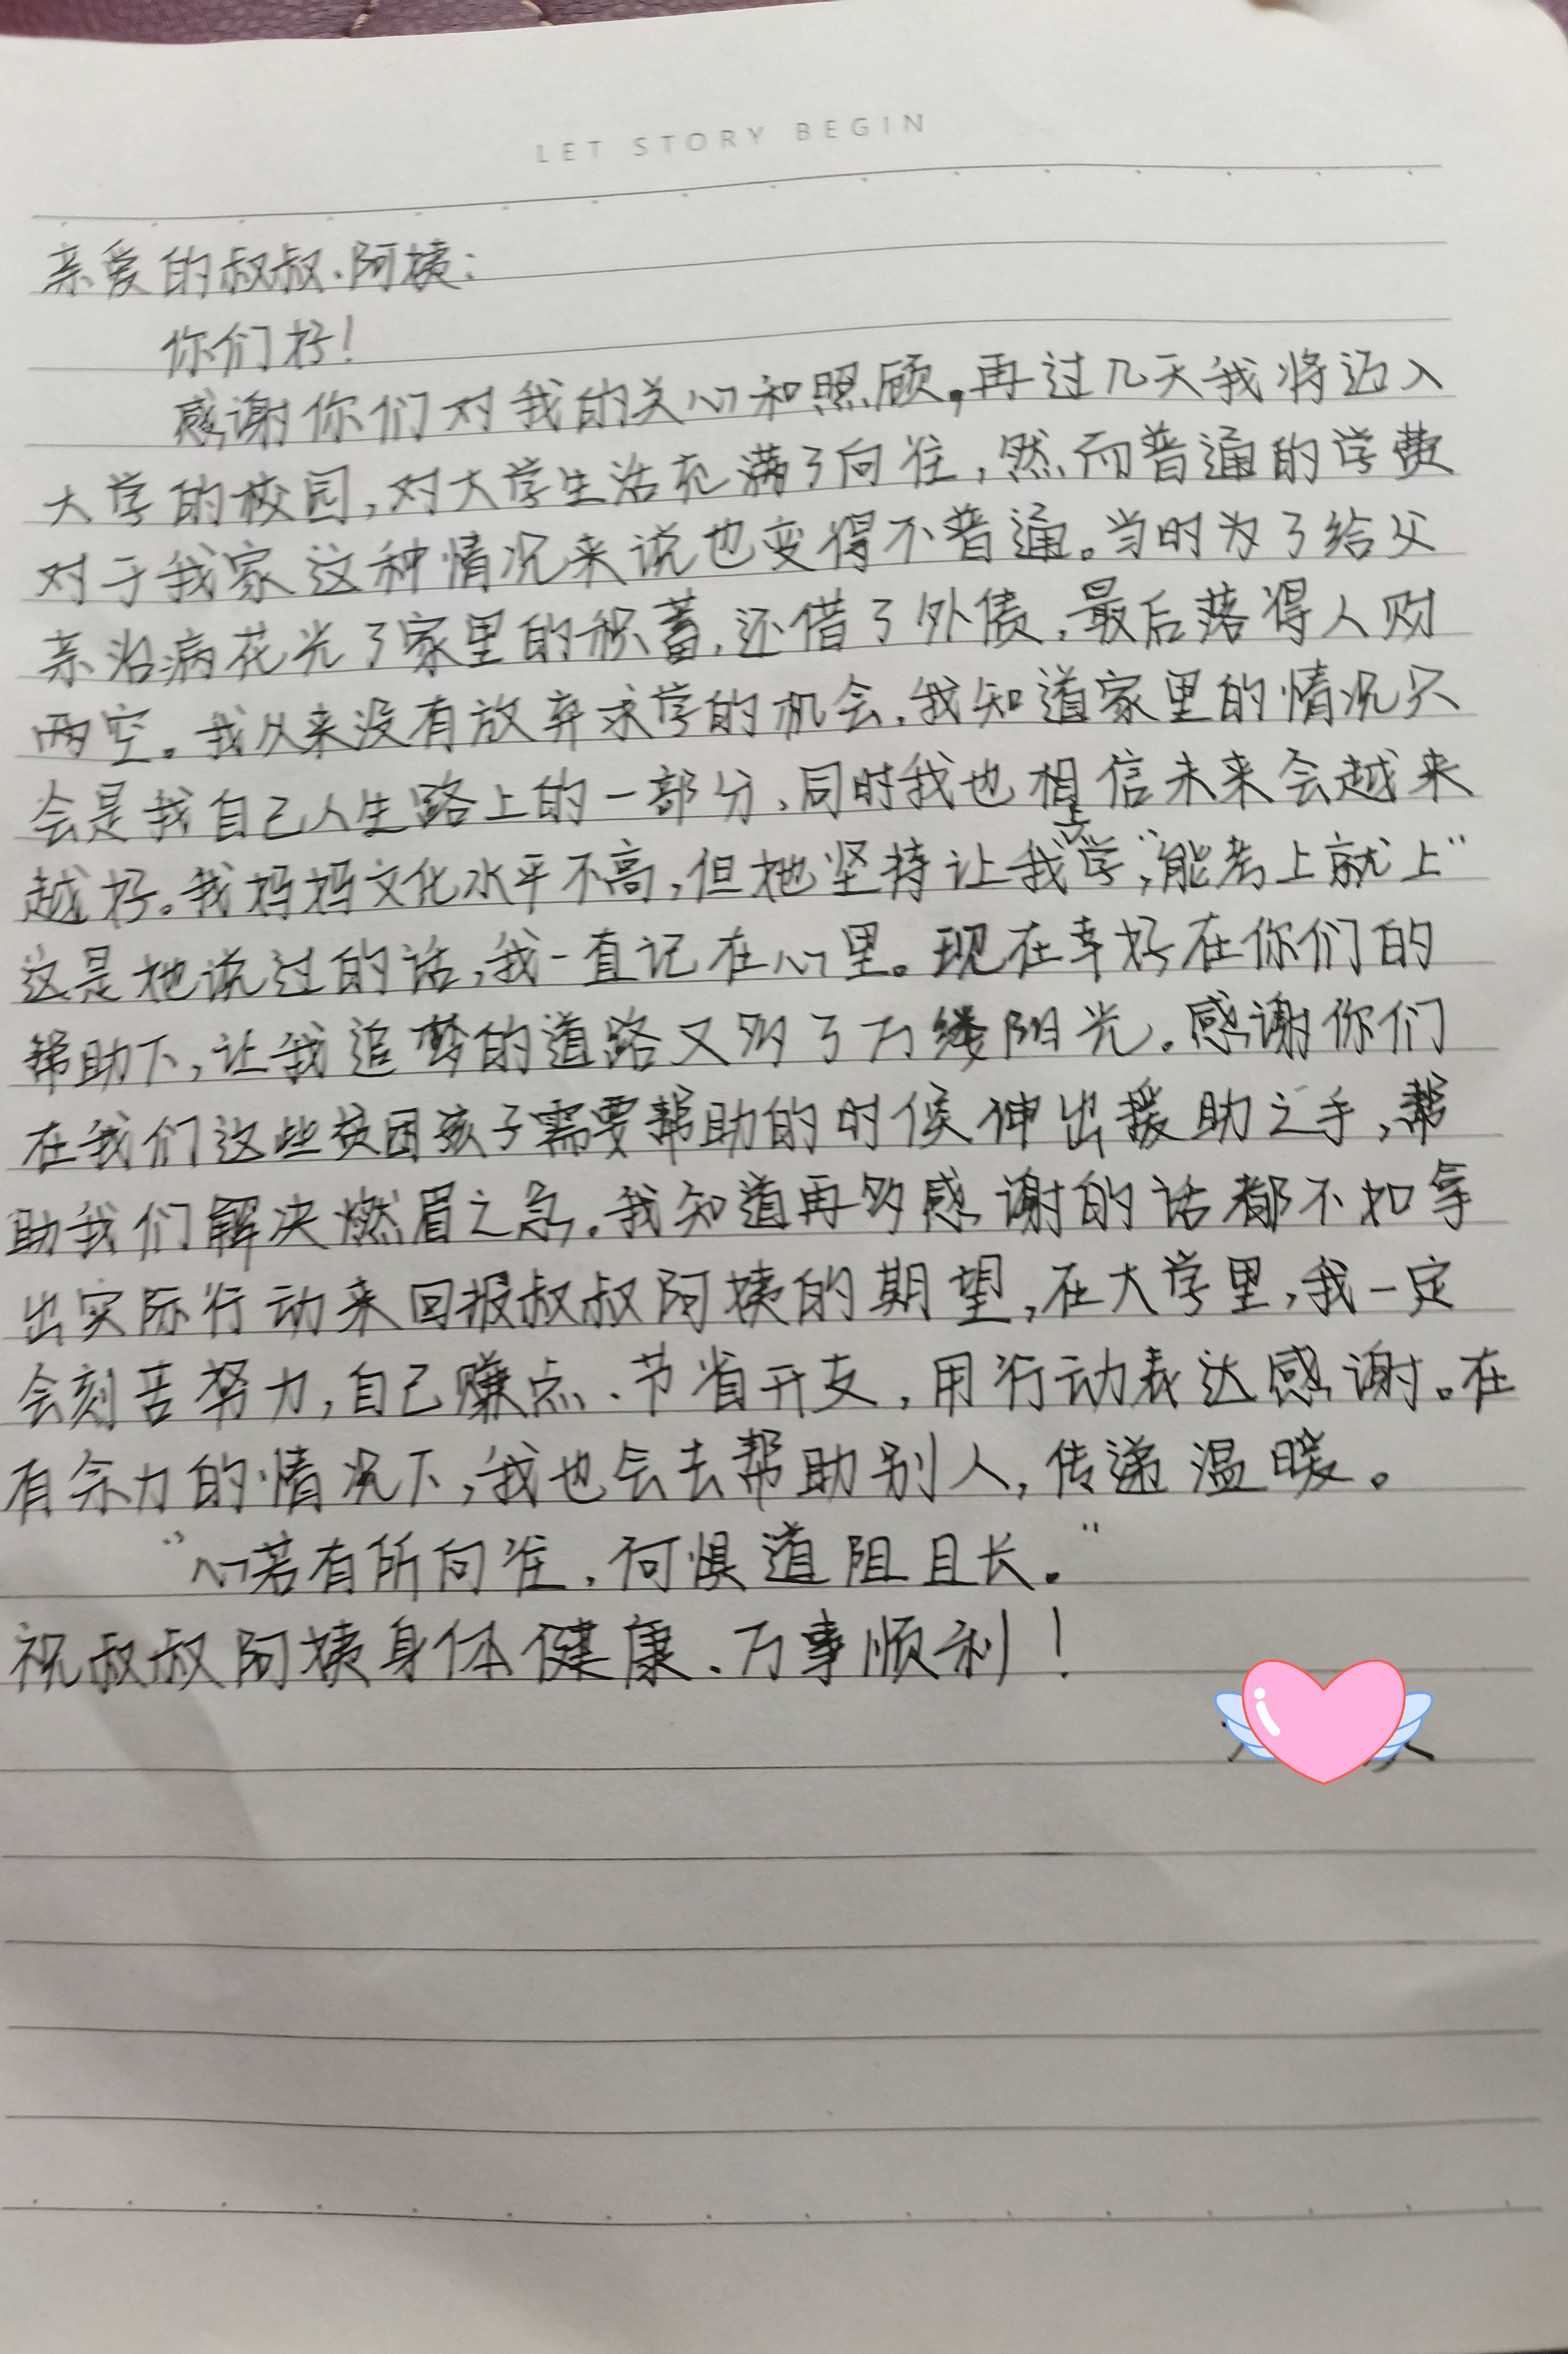 LET STORY BEGIN
亲爱的叔叔、阿姨:
你们好!
感谢你们对我的关心和照顾。再过几天我将迈入
大学的校园,对大学生活充满了向往,然而普通的学费
对于我家这种情况来说也变得不普通。当时为了给父
亲治病花光了家里的积蓄,还借了外债,最后落得人财
两空。我从来没有放弃求学的机会,我知道家里的情况只
会是我自己人生路上的一部分,同时我也相信未来会越来
越好。我妈妈文化水平不高,但她坚持让我上学,“能考上就上”
这是她说过的话,我一直记在心里。现在幸好在你们的
帮助下,让我追梦的道路又多了万缕阳光。感谢你们
在我们这些贫困孩子需要帮助的时候伸出援助之手,帮
助我们解决燃眉之急。我知道再多感谢的话都不如拿
出实际行动来回报叔叔阿姨的期望,在大学里,我一定
会刻苦努力,自己赚点、节省开支,用行动表达感谢。在
有余力的情况下,我也会去帮助别人,传递温暖。
“心若有所向往,何惧道阻且长。”
祝叔叔阿姨身体健康、万事顺利!